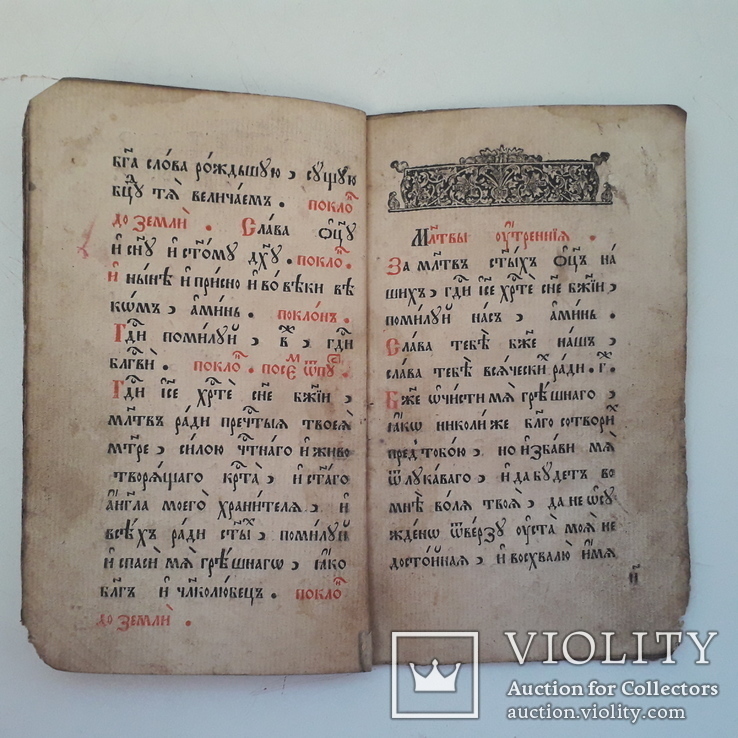 бг҃а сло́ва ро́ждьшую , сущую
бцⷣу тѧ̀ велича́емъ . покло́ⷩ
до землѝ . Сла́ва ѻ҆ц҃у
и҆ сн҃у и҆ ст҃о́му дх҃у . покло́ⷩ .
и҆ ны́нѣ и҆ при́сно и҆ во́ вѣки вѣ
ко́мъ , а҆ми́нь . покло́нъ .
Гдⷭ҇и поми́луй , в҃ⷤ , гдⷭ҇и
блг҃ви̇̀ . покло́ⷩ .
Гдⷭ҇и і҆с҃е хрⷭ҇тѐ сн҃е бж҃їи ,
мл҃твъ ра́ди пречⷭ҇тыѧ твоеѧ̀
мт҃ре , си́лою чтⷭ҇на́го и҆ живо
творѧ́щаго крⷭ҇та̀ , и҆ ст҃а́го
а҆́нг҃ла моего̀ храни́телѧ , и҆
всѣ́хъ ра́ди ст҃ыⷯ , поми́луй
и҆ спаси́ мѧ грѣ́шнагѡ , ꙗ҆́ко
бл҃гъ и҆ чл҃колю́бецъ . покло́ⷩ
до землѝ .
Мл҃твы ᲂу҆́тренниѧ .
За мл҃твъ ст҃ы́хъ ѻ҆ц҃ъ на́
шихъ , гдⷭ҇и і҆с҃е хрⷭ҇тѐ сн҃е бж҃їи ,
поми́луй насъ , а҆ми́нь .
Сла́ва тебѣ̀ бж҃е на́шъ ,
сла́ва тебѣ̀ всѧ́ческиⷯ ра́ди . г҃ .
Бж҃е ѡ҆чи́сти мѧ грѣ́шнаго ,
ꙗ҆́кѡ николи́ же бл҃го сотвори́ⷯ
пред̾ тобо́ю , но и҆зба́ви мѧ̀
ѿ лука́ваго , и҆ да бу́детъ во
мнѣ̀ во́лѧ твоѧ̀ , да не ѡ҆су
жде́нѡ ѿве́рзу ᲂу҆ста̀ моѧ̀ не
досто́йнаѧ , и҆ восхвалю̀ и҆́мѧ
и҃
VIOLITY
Auction for Collectors
auction.violity.com